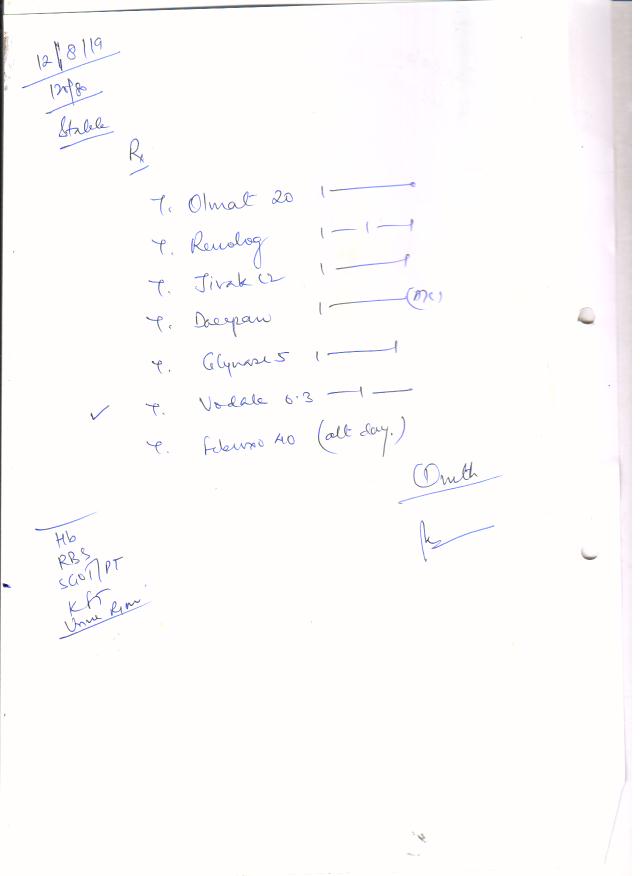 12/8/19
120/80
Stable
Rx
T. Olmat 20 1————
T. Renolog 1—1—1
T. Jivak 12 1————1
T. 1————
T. Glynase 5 1————1
✓ T. 0.3 —1—
T. Febuxo 40 (alt day.)
① mth
Hb
RBS
SGOT/PT
KFT
Urine R/m